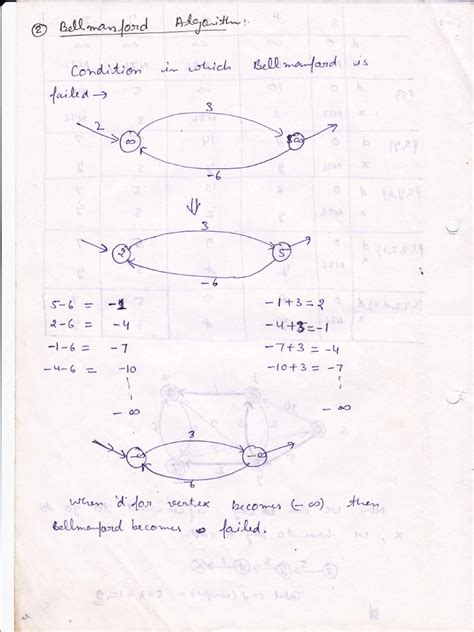 ② Bellmanford Algorithm:.
Condition in which Bellmanford is
failed →
2
3
∞
∞
-6
⇓
3
2
5
-6
5-6 = -1
-1+3 = 2
2-6 = -4
-4+3=-1
-1-6 = -7
-7+3 = -4
-4-6 = -10
-10+3 = -7
-∞
-∞
3
-∞
-∞
-6
when 'd' for vertex becomes (-∞) then
Bellmanford becomes failed.